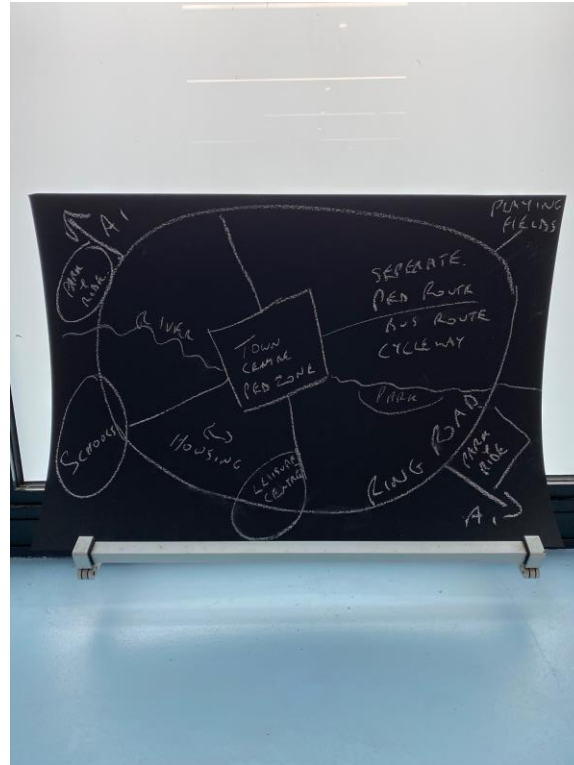 A1
PLAYING
FIELDS
PARK
+
RIDE
SEPERATE
PED ROUTE
BUS ROUTE
CYCLEWAY
RIVER
TOWN
CENTRE
PED ZONE
PARK
SCHOOLS
HOUSING
LEISURE
CENTRE
RING ROAD
PARK
+
RIDE
A1